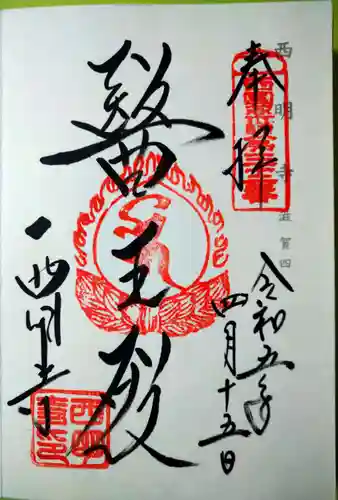 奉拝
西明寺
滋賀四
令和五年
四月十五日
醫王殿
西明寺